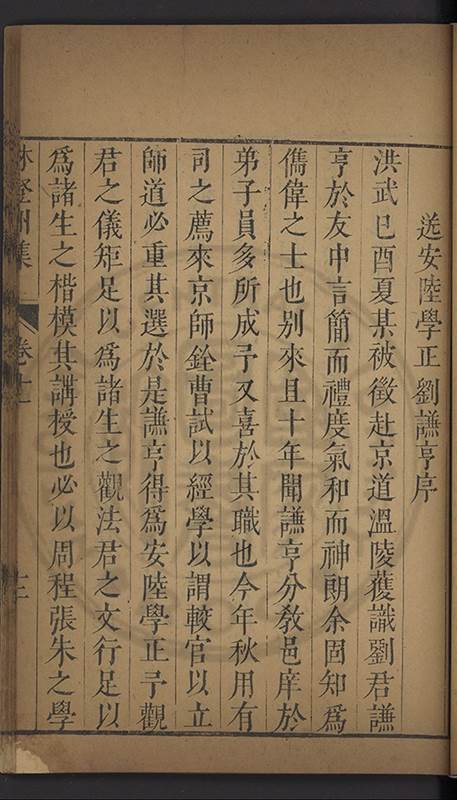 送安陸學正劉謙亨序
洪武已酉夏某被徵赴京道溫陵獲識劉君謙
亨於友中言簡而禮度氣和而神朗余固知爲
儁偉之士也别來且十年聞謙亨分敎邑庠於
弟子員多所成予又喜於其職也今年秋用有
司之薦來京師銓曹試以經學以謂較官以立
師道必重其選於是謙亨得爲安陸學正予觀
君之儀矩足以爲諸生之觀法君之文行足以
爲諸生之楷模其講授也必以周程張朱之學
林登州集
卷十